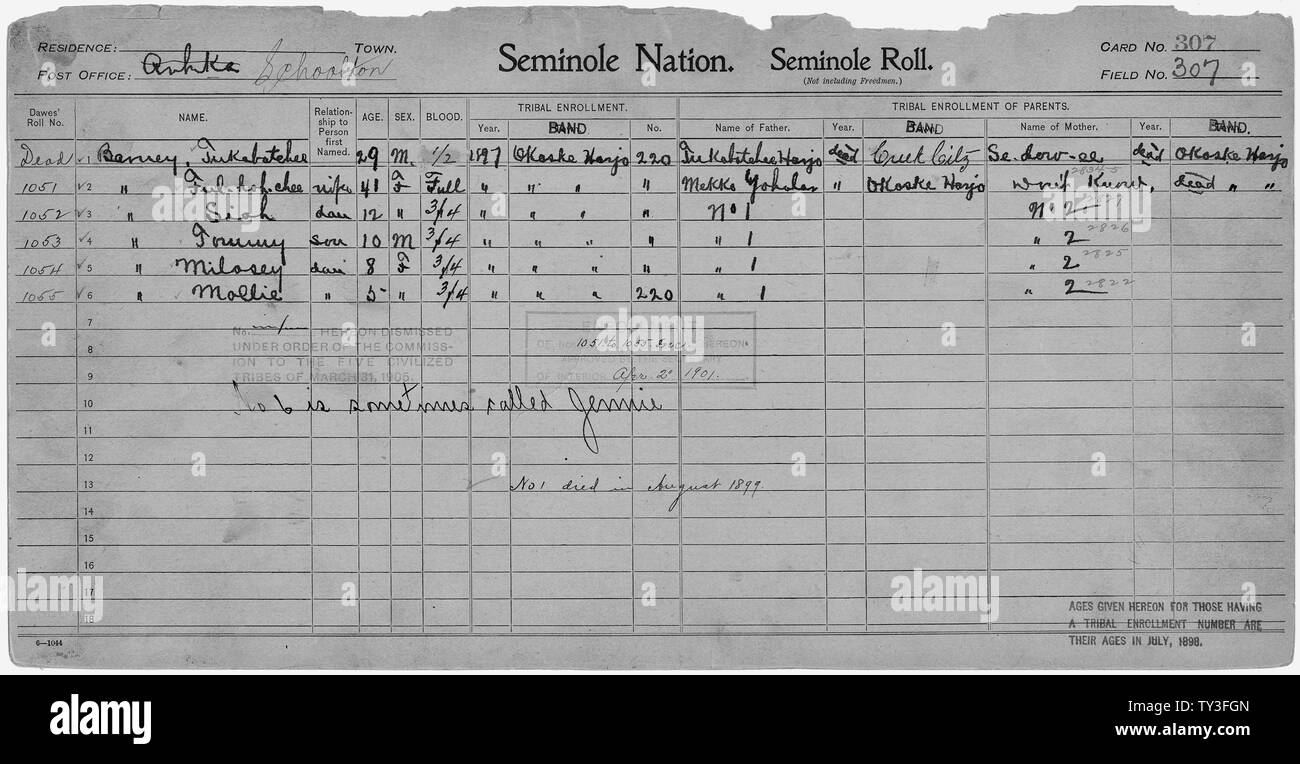 RESIDENCE: TOWN.
POST OFFICE: Schoolton
Seminole Nation. Seminole Roll.
(Not including Freedmen.)
CARD NO. 307
FIELD NO. 307
Dawes' Roll No. NAME. Relationship to Person first Named. AGE. SEX. BLOOD. TRIBAL ENROLLMENT. Year. BAND No. TRIBAL ENROLLMENT OF PARENTS. Name of Father. Year. BAND Name of Mother. Year. BAND.
Dead 1 Barney, Tukabatchee 29 M. 1/2 1897 Okoske Harjo 220 Tukabatchee Harjo dead Creek Citz Se-low-ee dead Okoske Harjo
1051 2 " wife 41 F Full " " " " Mekko Yoholar " Okoske Harjo Don't Know, dead " "
1052 3 " Siah dau 12 " 3/4 " " " " No 1 No 2
1053 4 " Tommy son 10 M 3/4 " " " " " 1 " 2 2826
1054 5 " Milosey dau 8 F 3/4 " " " " " 1 " 2 2825
1055 6 " Mollie " 5 " 3/4 " " " 220 " 1 " 2 2822
7
No. HEREON DISMISSED
8 UNDER ORDER OF THE COMMISSION TO THE FIVE CIVILIZED
9 TRIBES OF MARCH 31, 1905.
1051 to 1055 HEREON
APPROVED BY THE SECRETARY
OF INTERIOR Apr 2 1901.
10 No 6 is sometimes called Jennie
11
12
13 No 1 died in August 1899.
14
15
16
17
18
AGES GIVEN HEREON FOR THOSE HAVING
A TRIBAL ENROLLMENT NUMBER ARE
THEIR AGES IN JULY, 1898.
6—1044
alamy
Image ID: TY3FGN
www.alamy.com